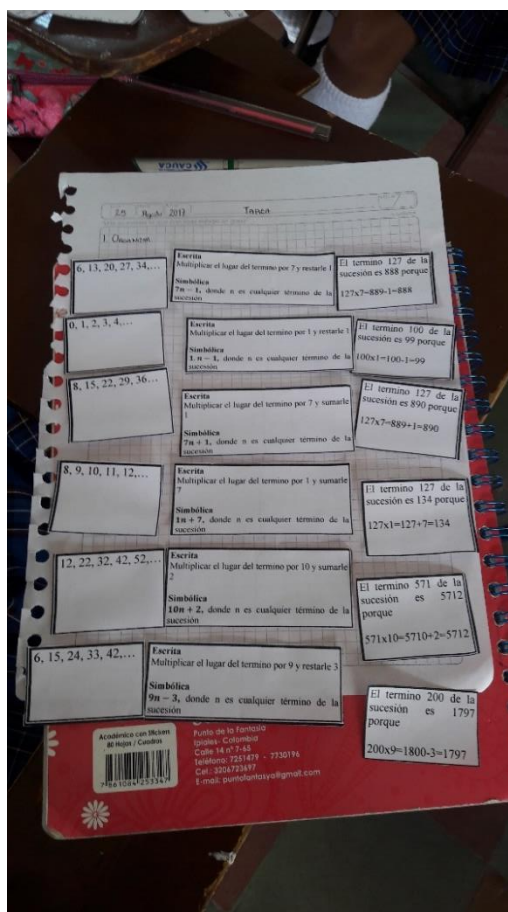 CAUCA
25 Agosto 2017 Tarea
1. Organizar
6, 13, 20, 27, 34,…
Escrita
Multiplicar el lugar del termino por 7 y restarle 1
Simbólica
7n − 1, donde n es cualquier término de la
sucesión
El termino 127 de la
sucesión es 888 porque
127x7=889-1=888
0, 1, 2, 3, 4,…
Escrita
Multiplicar el lugar del termino por 1 y restarle 1
Simbólica
1 n − 1, donde n es cualquier término de la
sucesión
El termino 100 de la
sucesión es 99 porque
100x1=100-1=99
8, 15, 22, 29, 36…
Escrita
Multiplicar el lugar del termino por 7 y sumarle
1
Simbólica
7n + 1, donde n es cualquier término de la
sucesión
El termino 127 de la
sucesión es 890 porque
127x7=889+1=890
8, 9, 10, 11, 12,…
Escrita
Multiplicar el lugar del termino por 1 y sumarle
7
Simbólica
1n + 7, donde n es cualquier término de la
sucesión
El termino 127 de la
sucesión es 134 porque
127x1=127+7=134
12, 22, 32, 42, 52,…
Escrita
Multiplicar el lugar del termino por 10 y sumarle
2
Simbólica
10n + 2, donde n es cualquier término de la
sucesión
El termino 571 de la
sucesión es 5712
porque
571x10=5710+2=5712
6, 15, 24, 33, 42,…
Escrita
Multiplicar el lugar del termino por 9 y restarle 3
Simbólica
9n − 3, donde n es cualquier término de la
sucesión
El termino 200 de la
sucesión es 1797
porque
200x9=1800-3=1797
Académico con Stickers
80 Hojas / Cuadros
Punto de la Fantasía
Ipiales- Colombia
Calle 14 nº 7-65
Teléfono: 7251479 - 7730196
Cel.: 3206723697
E-mail: puntofantasya@gmail.com